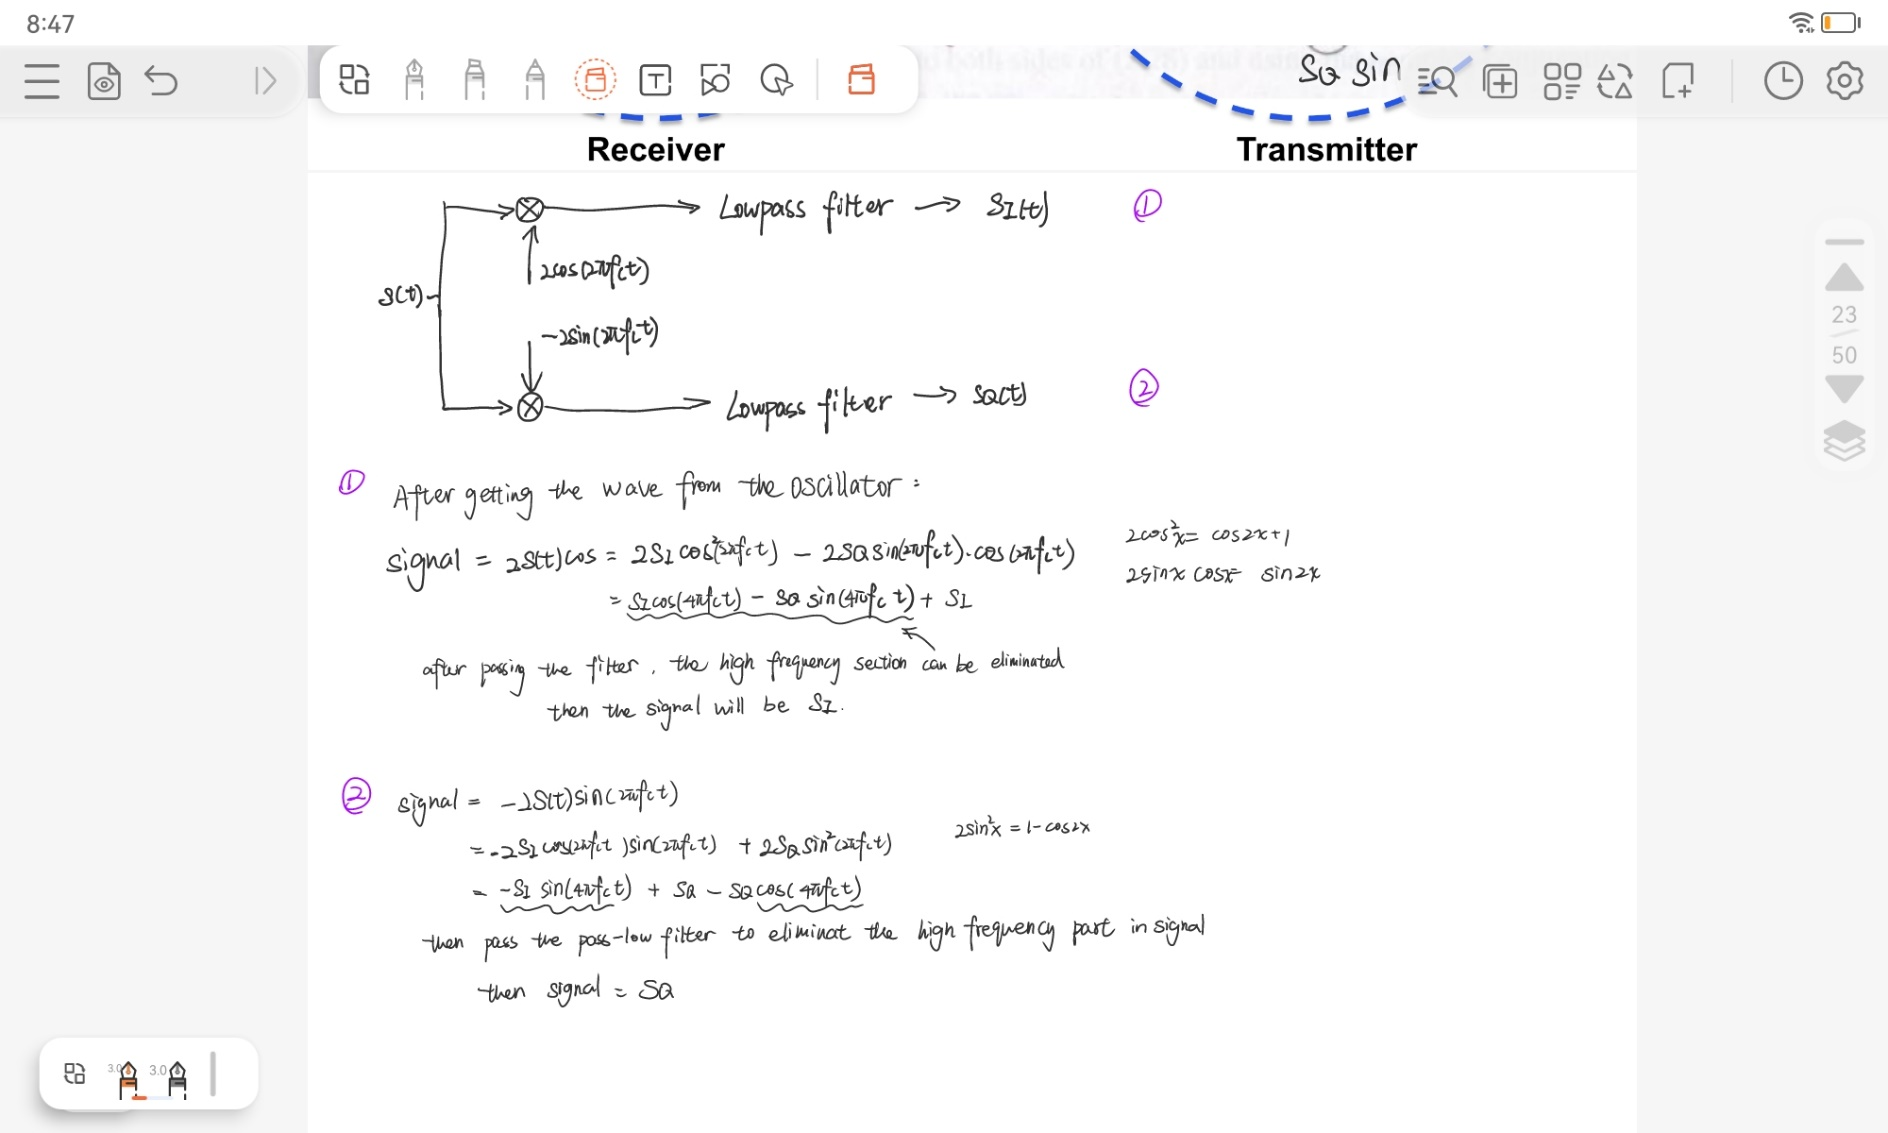 8:47
SQ sin
Receiver
Transmitter
Lowpass filter → SI(t) ①
2cos(2πfct)
S(t)
-2sin(2πfct)
Lowpass filter → SQ(t) ②
① After getting the wave from the oscillator :
signal = 2S(t)cos = 2SI cos²(2πfct) - 2SQ sin(2πfct)·cos(2πfct)
2cos²x = cos2x+1
2sinx cosx = sin2x
= SI cos(4πfct) - SQ sin(4πfct) + SI
after passing the filter, the high frequency section can be eliminated
then the signal will be SI.
② signal = -2S(t)sin(2πfct)
= -2SI cos(2πfct)sin(2πfct) + 2SQ sin²(2πfct)
2sin²x = 1-cos2x
= -SI sin(4πfct) + SQ - SQ cos(4πfct)
then pass the pass-low filter to eliminat the high frequency part in signal
then signal = SQ
23
50
3.0 3.0